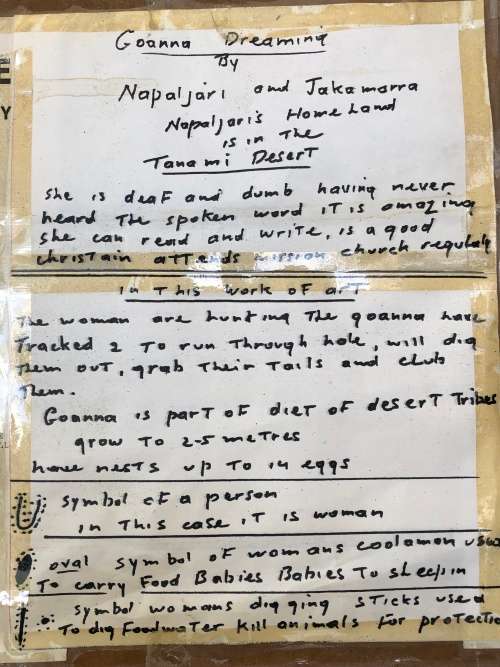 Goanna Dreaming
By
Napaljari and Jakamarra
Napaljaris HomeLand
is in The
Tanami Desert
she is deaf and dumb having never
heard The spoken word iT is amazing
she can read and write, is a good
christain attends mission church regularly
in This work of art
The woman are hunting The goanna have
Tracked 2 To run Through hole, will dig
Them out, grab Their Tails and club
Them.
Goanna is part of diet of desert Tribes
grow To 2-5 metres
have nests up To 14 eggs
symbol of a person
in This case iT is woman
oval symbol of womans coolamon
To carry Food Babies Babies To sleep in
symbol womans digging sticks used
To dig Food water kill animals For
E
Y